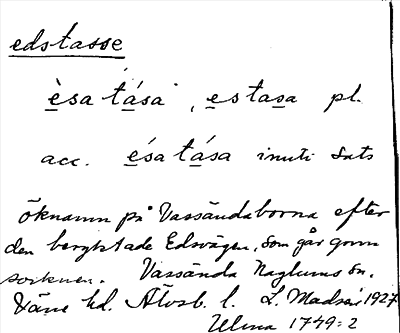 edstasse
èsatása, estasa pl.
acc. ésatása inuti sats
Öknamn på Vassändaborna efter
den bergktade Edsvägen, som går genom
socknen. Vassända Naglums sn.
Väne hd. Älvsb. l. L. Madsén 1927
Ulma 1749:2